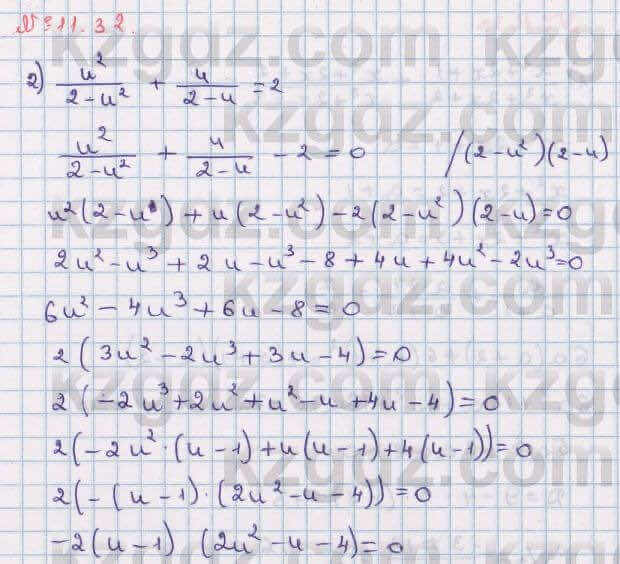 № 11.32.
2) u²/(2-u²) + u/(2-u) = 2
u²/(2-u²) + u/(2-u) - 2 = 0 /(2-u²)(2-u)
u²(2-u) + u(2-u²) - 2(2-u²)(2-u) = 0
2u² - u³ + 2u - u³ - 8 + 4u + 4u² - 2u³ = 0
6u² - 4u³ + 6u - 8 = 0
2(3u² - 2u³ + 3u - 4) = 0
2(-2u³ + 2u² + u² - u + 4u - 4) = 0
2(-2u²·(u-1) + u(u-1) + 4(u-1)) = 0
2(-(u-1)·(2u² - u - 4)) = 0
-2(u-1) (2u² - u - 4) = 0
kzgdz.com